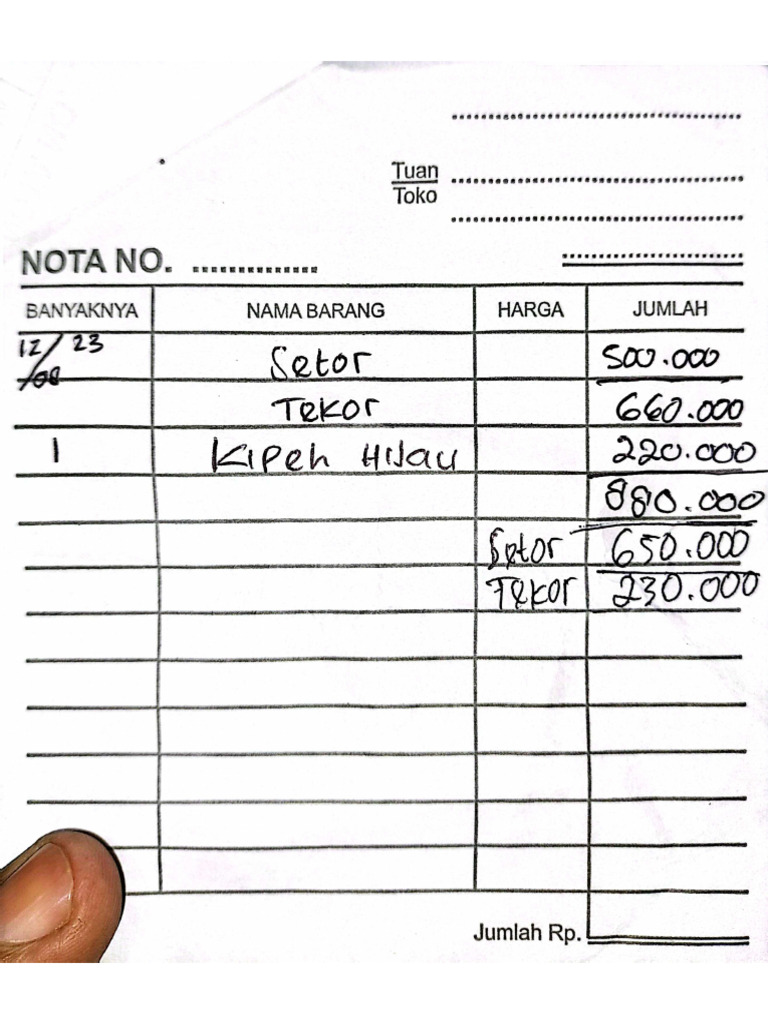 Tuan
Toko
NOTA NO. ..............
BANYAKNYA NAMA BARANG HARGA JUMLAH
12/08 23 Setor 500.000
Tekor 660.000
1 Kipeh Hijau 220.000
880.000
Setor 650.000
Tekor 230.000
Jumlah Rp.